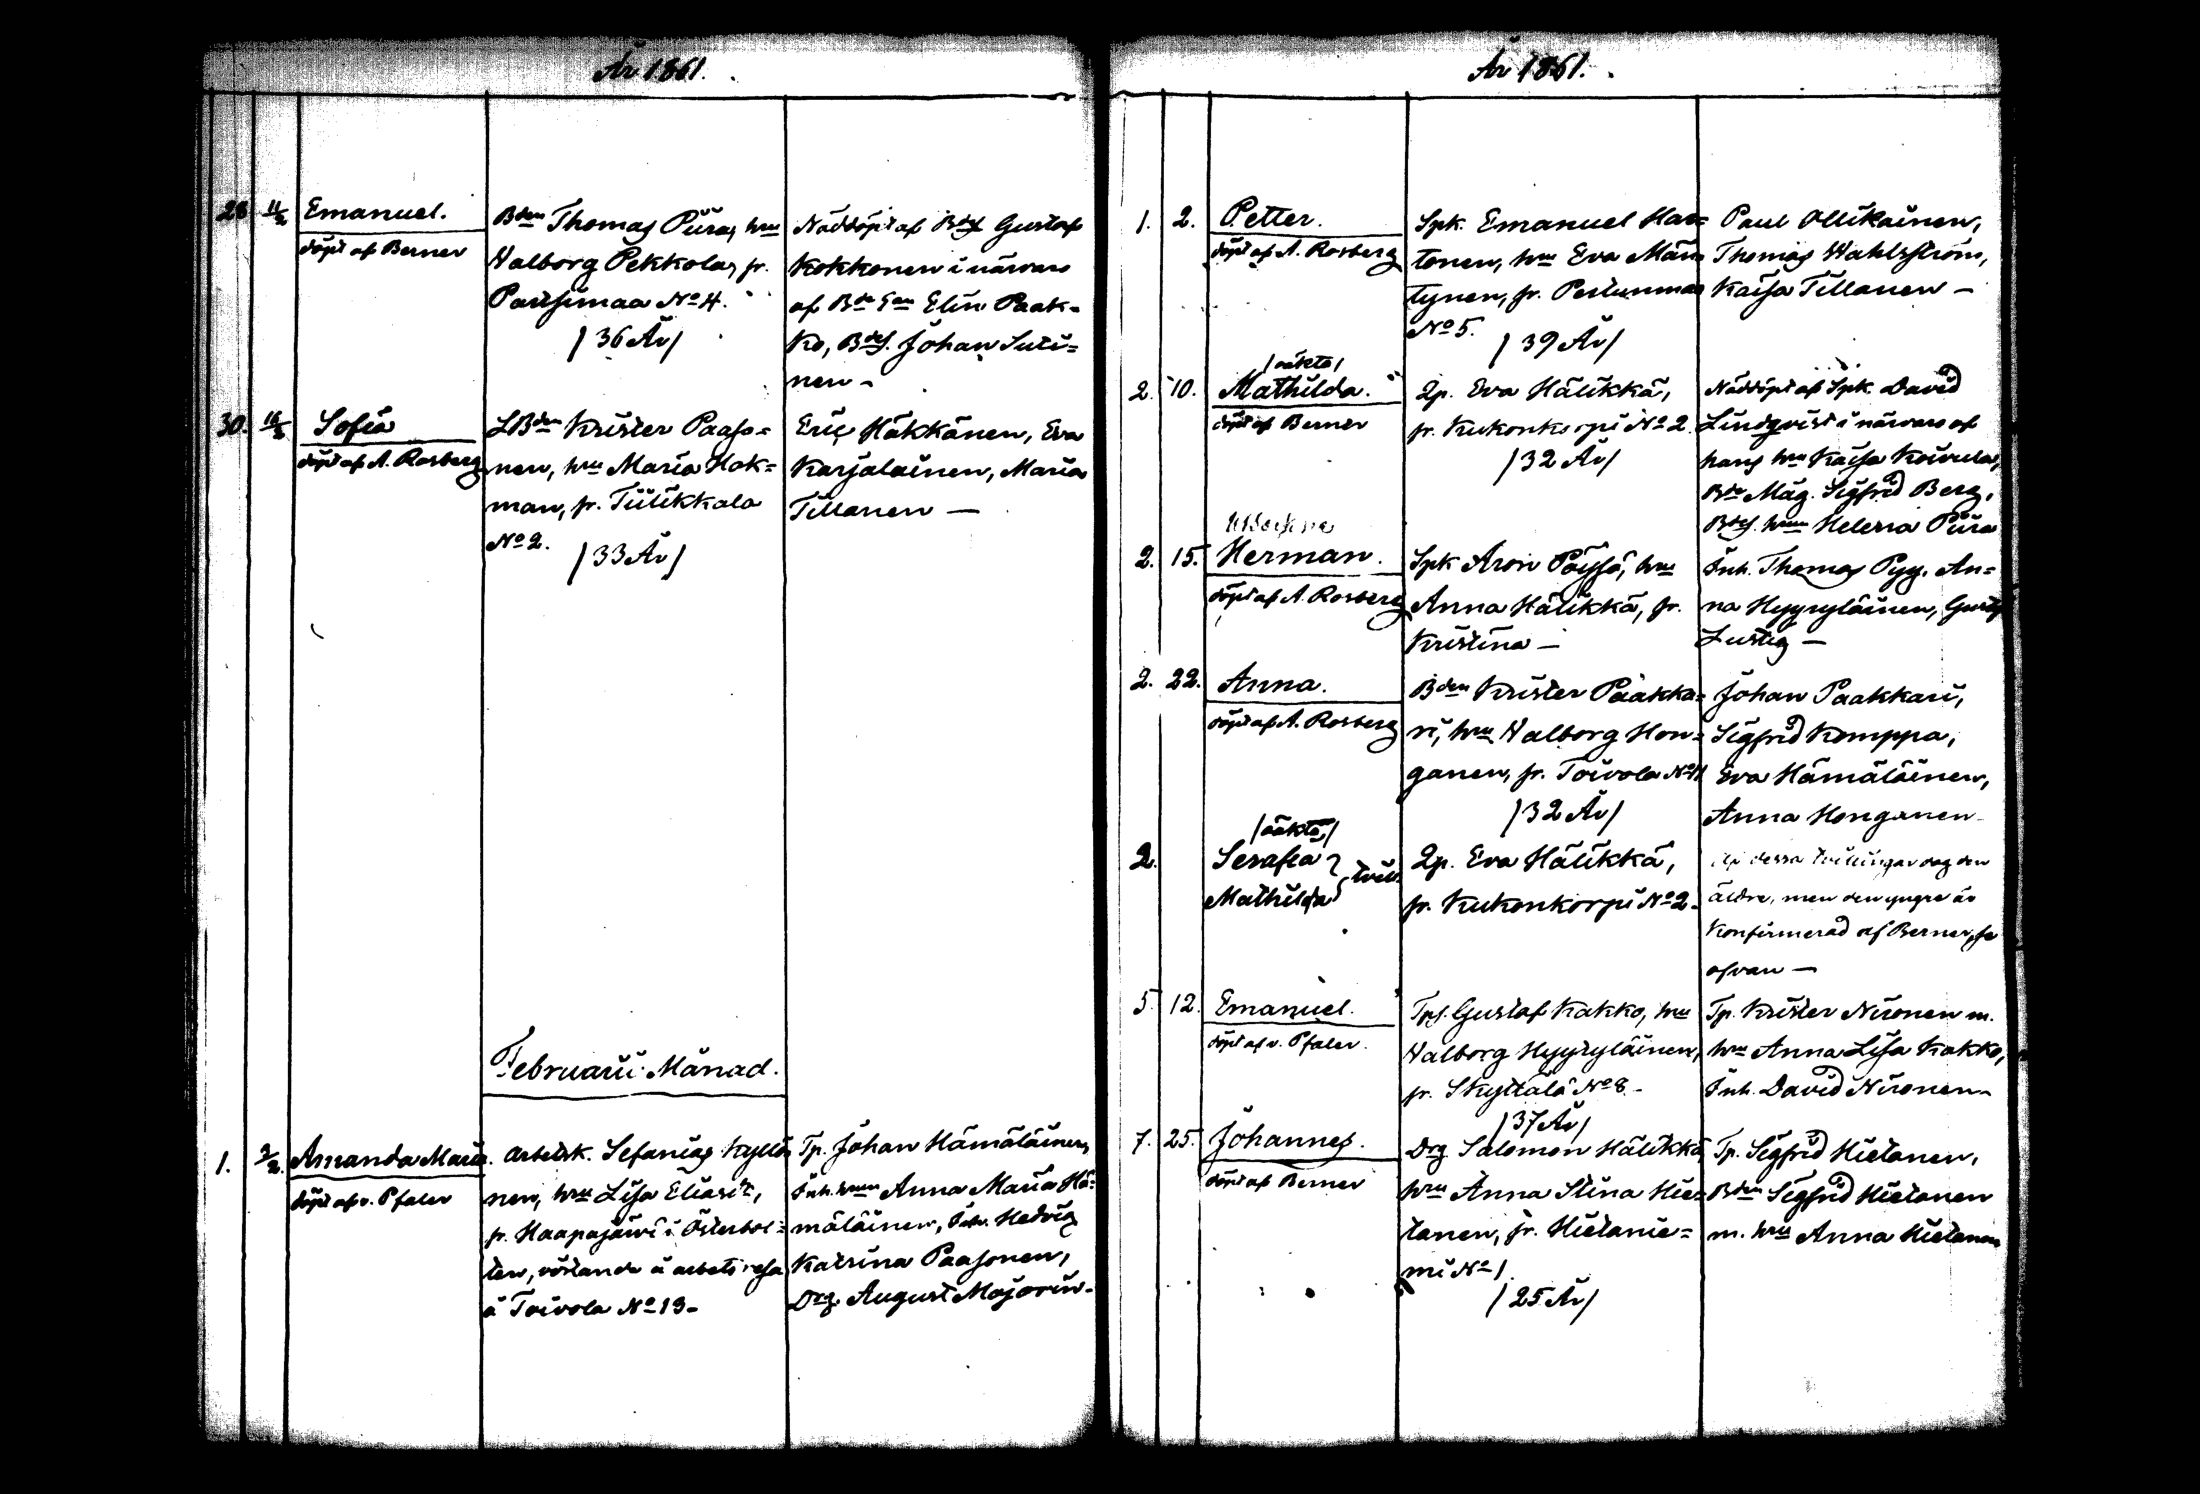 År 1861.
28 11/2 Emanuel.
döpt af Berner
Bden Thomas Piira, hru
Walborg Pekkola, fr.
Partsimaa No 4.
/36 År/
Nöddöpt af Bdes Gustaf
Kokkonen i närvaro
af Bde Elin Paak-
ko, Bdes. Johan Suti=
nen –
30. 16/3 Sofia
döpt af A. Rosberg
LBden Krister Paaso=
nen, hru Maria Hok=
man, fr. Tiilikkala
No 2.
/33 År/
Eric Häkkänen, Eva
Karjalainen, Maria
Tillanen —
Februarii Månad.
1. 3/2. Amanda Maria.
döpt af v. Pfaler
Arbetsk. Sefanias Kyllö
nen, hru Lisa Eliasdr,
fr. Haapajärvi i Österbot=
ten, vistande å arbets resa
å Toivola No 13–
Tp. Johan Hämäläinen,
Inh. hrun Anna Maria Hä=
mäläinen, Inh. Hedvig
Katrina Paasonen,
Drg. August Majorin–
År 1861.
1. 2. Petter.
döpt af A. Rosberg
Spk. Emanuel Har=
tonen, hru Eva Män
tynen, fr. Pertunmaa
No 5.
/39 År/
Paul Ollikainen,
Thomas Wahlström,
Kaisa Tillanen –
/oäkta/
2. 10. Mathilda.
döpt af Berner
Qp. Eva Hälikkä,
fr. Kukonkorpi No 2.
/32 År/
Nöddöpt af Spk. David
Lindqvist i närvaro af
hans hru Kaisa Koivula,
Bde Måg. Sigfrid Berg,
Bdes. hrun Helena Piira
2. 15. Herman.
döpt af A. Rosberg
Spk Aron Pöysö, hru
Anna Hälikkä, fr.
Kristina –
Inh. Thomas Pyy, An=
na Hyyryläinen, Gustaf
Lustig —
2. 22. Anna.
döpt af A. Rosberg
Bden Krister Paakka=
ri, hru Walborg Hon=
ganen, fr. Toivola No 11
/32 År/
Johan Paakkari,
Sigfrid Komppa,
Eva Hämäläinen,
Anna Honganen–
/oäkta,/
2. Serafia } tvill.
Mathilda
Qp. Eva Hälikkä,
fr. Kukonkorpi No 2–
Af dessa tvillingar dog den
äldre, men den yngre är
Konfirmerad af Berner, se
ofvan —
5. 12. Emanuel.
döpt af v. Pfaler.
Tps. Gustaf Kakko, hru
Walborg Hyyryläinen,
fr. Skyttälä No 8.–
/37 År/
Tp. Krister Nironen m.
hru Anna Lisa Kakko,
Inh. David Nironen–
7. 25. Johannes.
döpt af Berner
Drg Salomon Hälikkä,
hru Anna Stina Hie=
tanen, fr. Hietanie=
mi No 1.
/25 År/
Tp. Sigfrid Hietanen,
Bden Sigfrid Hietanen
m. hru Anna Hietanen